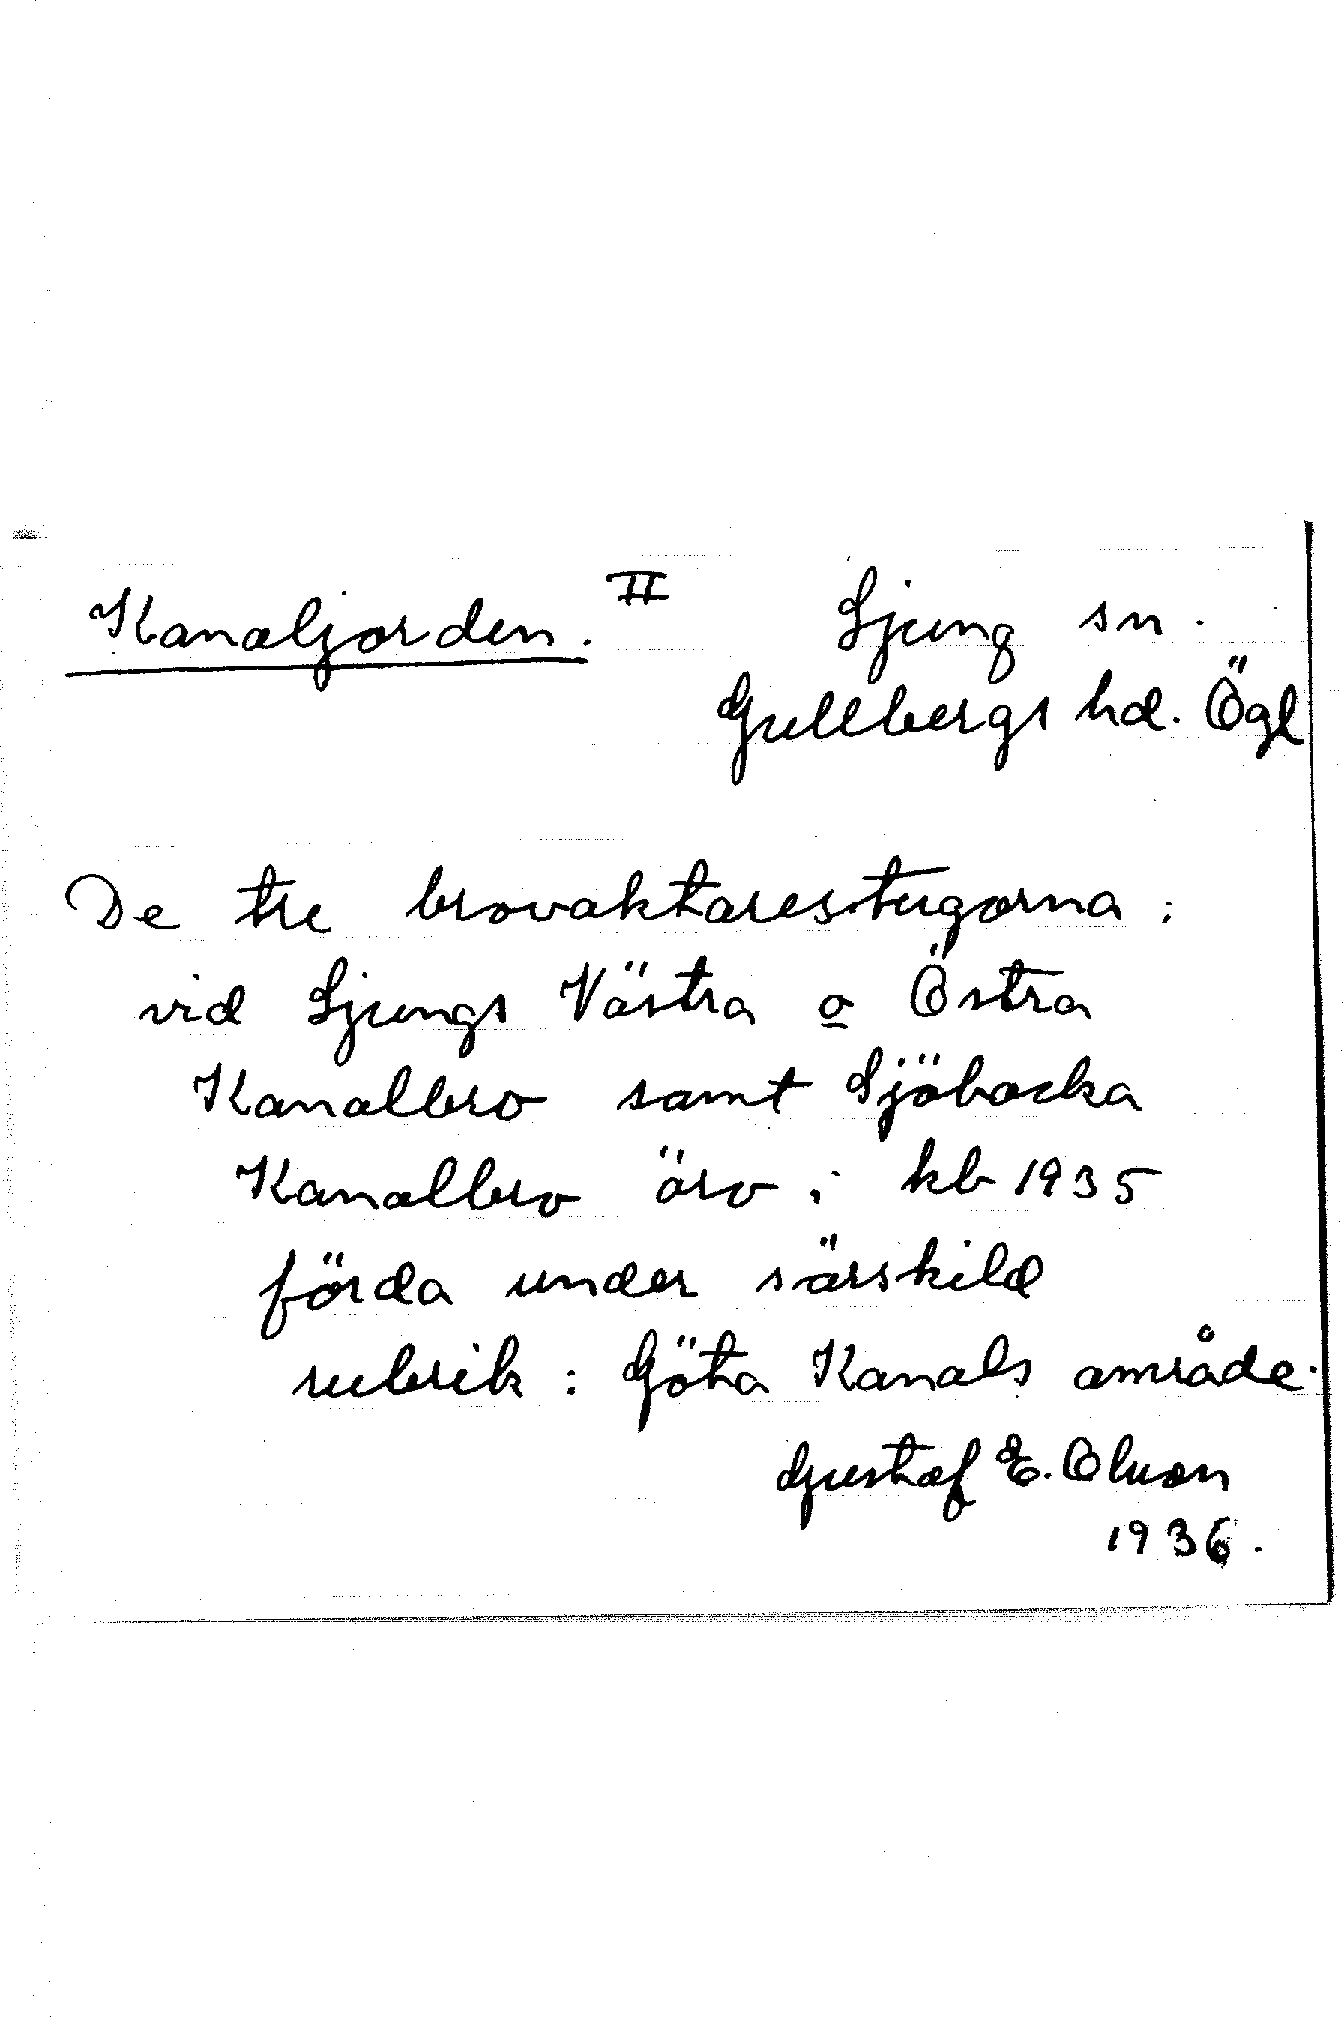 Kanaljorden. II
Ljung sn.
Gullbergs hd. Ögl
De tre brovaktarestugorna:
vid Ljungs Västra o Östra
Kanalbro samt Sjöbacka
Kanalbro äro i kb 1935
förda under särskild
rubrik: Göta Kanals område.
Gustaf E. Olsson
1936.